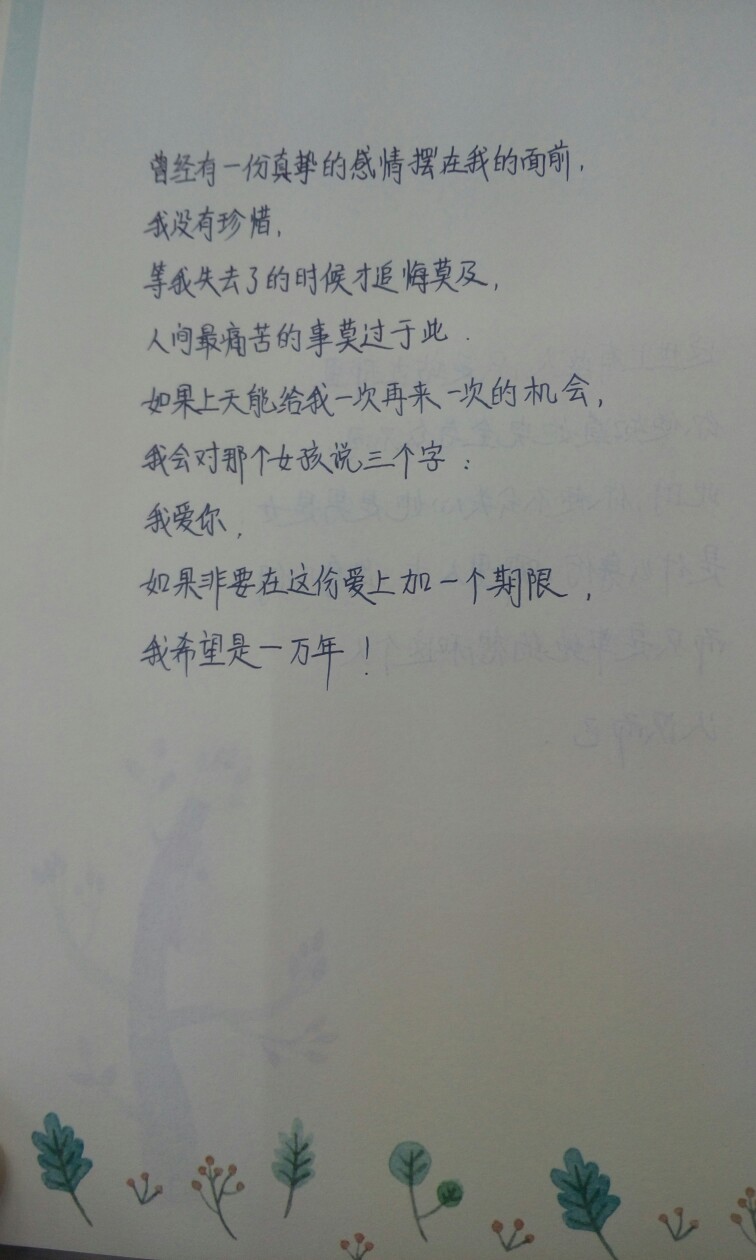 曾经有一份真挚的感情摆在我的面前，
我没有珍惜，
等我失去了的时候才追悔莫及，
人间最痛苦的事莫过于此．
如果上天能给我一次再来一次的机会，
我会对那个女孩说三个字：
我爱你，
如果非要在这份爱上加一个期限，
我希望是一万年！